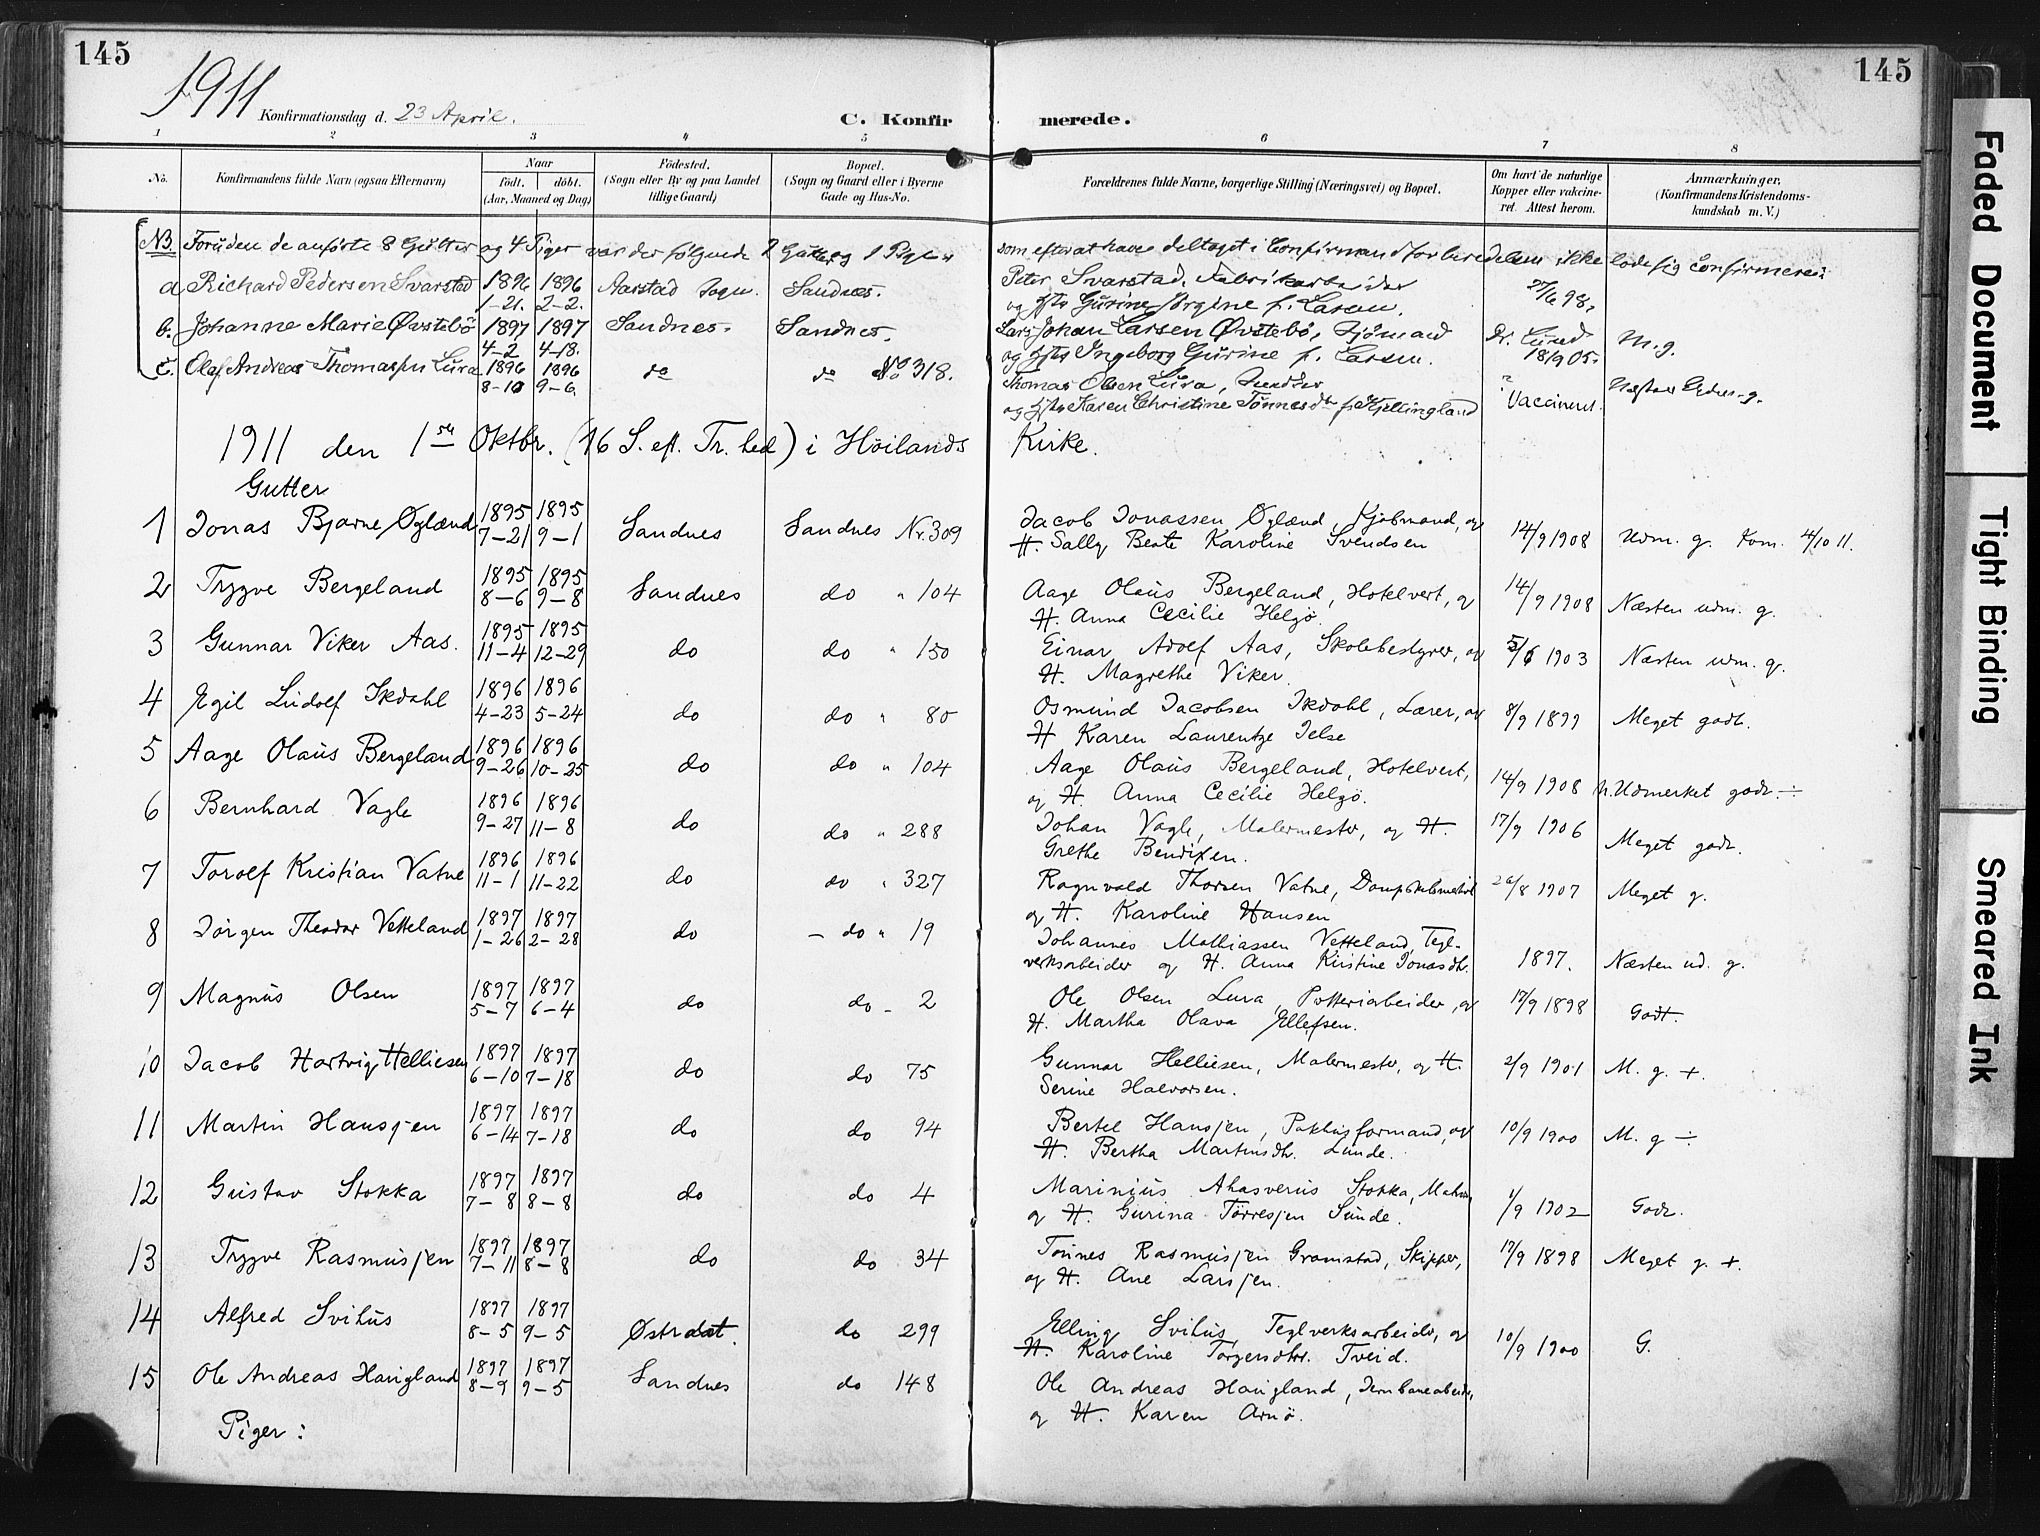 145
145
1911
Konfirmationsdag d. 23 April.
C. Konfirmerede.
1 2 3 4 5 6 7 8
No.
Konfirmandens fulde Navn (ogsaa Efternavn)
Naar
født. døbt.
(Aar, Maaned og Dag)
Fødested.
(Sogn eller By og paa Landet tillige Gaard)
Bopæl.
(Sogn og Gaard eller i Byerne Gade og Hus-No.
Forældrenes fulde Navne, borgerlige Stilling (Næringsvei) og Bopæl.
Om havt de naturlige Kopper eller vaccineret. Attest herom.
Anmærkninger,
(Konfirmandens Kristendomskundskab m. V.)
NB. Foruden de anførte 8 Gutter og 4 Piger var der følgende 2 Gutter og 1 Pige som efter at have deltaget i Confirmandforberedelsen ikke lode sig confirmere:
a Richard Pedersen Svarstad 1896 1-21. 1896 2-2. Aarstad Sogn. Sandnes. Peter Svarstad, Fabrikarbeider
og Hst Gurine Jørgine f. Larsen.
b. Johanne Marie Øvstebø 1897 4-2 1897 4-18. Sandnes. Sandnes. Lars Johan Larsen Øvstebø, Sjømand Dr. Lund 18/9 05. M.g.
og Hst Ingeborg Gurine f. Larsen.
c. Olaf Andreas Thomassen Lura 1896 8-10 1896 9-6 do do No 318. Thomas Olsen Lura, Vaccineret.
og Hst Karen Christine Tønnesdtr f. Kjellingland
1911 den 1ste Oktbr. (16 S. eft. Tr. hed) i Høilands Kirke.
Gutter
1 Jonas Bjarne Øglænd 1895 7-21 1895 9-1 Sandnes Sandnes Nr. 309 Jacob Jonassen Øglænd, Kjøbmand, og 14/9 1908 Udm. g. Kom. 4/10 11.
H. Sally Beate Karoline Svendsen
2 Trygve Bergeland 1895 8-6 1895 9-8 Sandnes do " 104 Aage Olaus Bergeland, Hotelvert, og 14/9 1908 Næsten udm. g.
H. Anna Cecilie Helgø.
3 Gunnar Viker Aas. 1895 11-4 1895 12-29 do do " 150 Einar Adolf Aas, Skolebestyrer, og 5/6 1903 Næsten udm. g.
H. Magrethe Viker.
4 Egil Ludolf Skdahl 1896 4-23 1896 5-24 do do " 80 Osmund Jacobsen Skdahl, Lærer, og 8/9 1899 Meget godt.
H Karen Laurentze Jelse
5 Aage Olaus Bergeland 1896 9-26 1896 10-25 do do " 104 Aage Olaus Bergeland, Hotelvert, 14/9 1908 n. Udmerket godt. ÷
og H. Anna Cecilie Helgø.
6 Bernhard Vagle 1896 9-27 1896 11-8 do do " 288 Johan Vagle, Malermester, og H. 17/9 1906 Meget godt.
Grethe Bendixen.
7 Torolf Kristian Vatne 1896 11-1 1896 11-22 do do " 327 Ragnvald Thorsen Vatne, 26/8 1907 Meget g.
og H. Karoline Hansen
8 Jørgen Theodor Vetteland 1897 1-26 1897 2-28 do - do " 19 Johannes Mathiassen Vetteland, Tegl-
verksarbeider og H. Anna Kirstine Jonasdtr. 1897. Næsten ud. g.
9 Magnus Olsen 1897 5-7 1897 6-4 do do - 2 Ole Olsen Lura, Potteriarbeider, og 17/9 1898 Godt.
H. Martha Olava Ellefsen.
10 Jacob Hartvig Helliesen 1897 6-10 1897 7-18 do do 75 Gunnar Helliesen, Malermester, og H. 2/9 1901 M. g. +.
Serine Halvorsen.
11 Martin Hansen 1897 6-14 1897 7-18 do do 94 Bertel Hansen, Pakhusformand, og 10/9 1900 M. g ÷
H. Bertha Martinsdtr. Lunde.
12 Gustav Stokka 1897 7-8 1897 8-8 do do 4 Marinius Ahasverus Stokka, Maler 1/9 1902 Godt.
og H. Gurina Tørresen Sunde.
13 Trygve Rasmussen 1897 7-11 1897 8-8 do do 34 Tønnes Rasmussen Gramstad, Skipper, 17/9 1898 Meget g. +.
og H. Ane Larsen.
14 Alfred Svihus 1897 8-5 1897 9-5 Østradt. do 299 Elling Svihus, Teglverksarbeider, og 10/9 1900 G.
H. Karoline Torgersdtr. Tveid.
15 Ole Andreas Haugland 1897 8-9 1897 9-5 Sandnes do 148 Ole Andreas Haugland, Jernbanearbeider,
og H. Karen Arnø.
Piger:
Faded Document
Tight Binding
Smeared Ink